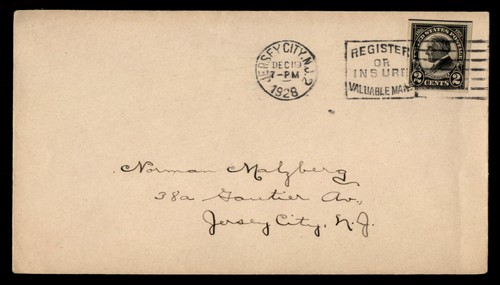 JERSEY CITY, N.J. 2
DEC 19
7-PM
1926
REGISTER
OR
INSURE
VALUABLE MAIL
UNITED STATES POSTAGE
2 CENTS 2
Norman Malzberg
38a Gautier Av.,
Jersey City, N.J.